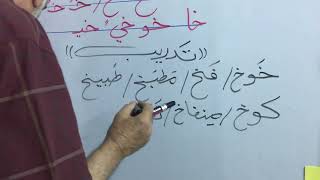 خا خو خي خيـ
((تدريب))
خَوخ / فَخ / مَطبَخ / طَبيخ
كوخ / مِنفاخ /